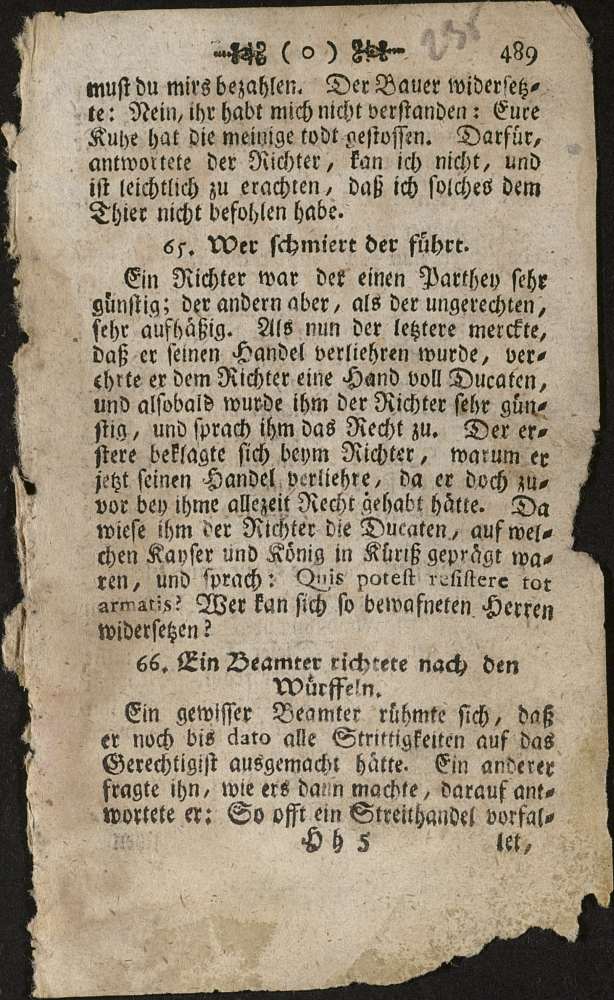 ( o ) 235 489
must du mirs bezahlen. Der Bauer widersetz-
te: Nein, ihr habt mich nicht verstanden: Eure
Kuhe hat die meinige todt gestossen. Darfür,
antwortete der Richter, kan ich nicht, und
ist leichtlich zu erachten, daß ich solches dem
Thier nicht befohlen habe.
65. Wer schmiert der führt.
Ein Richter war der einen Parthey sehr
günstig; der andern aber, als der ungerechten,
sehr aufhäßig. Als nun der letztere merckte,
daß er seinen Handel verliehren wurde, ver-
ehrte er dem Richter eine Hand voll Ducaten,
und alsobald wurde ihm der Richter sehr gün-
stig, und sprach ihm das Recht zu. Der er-
stere beklagte sich beym Richter, warum er
jetzt seinen Handel verliehre, da er doch zu-
vor bey ihme allezeit Recht gehabt hätte. Da
wiese ihm der Richter die Ducaten, auf wel-
chen Kayser und König in Küriß geprägt wa-
ren, und sprach: Quis potest resistere tot
armatis? Wer kan sich so bewafneten Herren
widersetzen?
66. Ein Beamter richtete nach den
Würffeln.
Ein gewisser Beamter rühmte sich, daß
er noch bis dato alle Strittigkeiten auf das
Gerechtigist ausgemacht hätte. Ein anderer
fragte ihn, wie ers dann machte, darauf ant-
wortete er: So offt ein Streithandel vorfal-
H h 5 let,